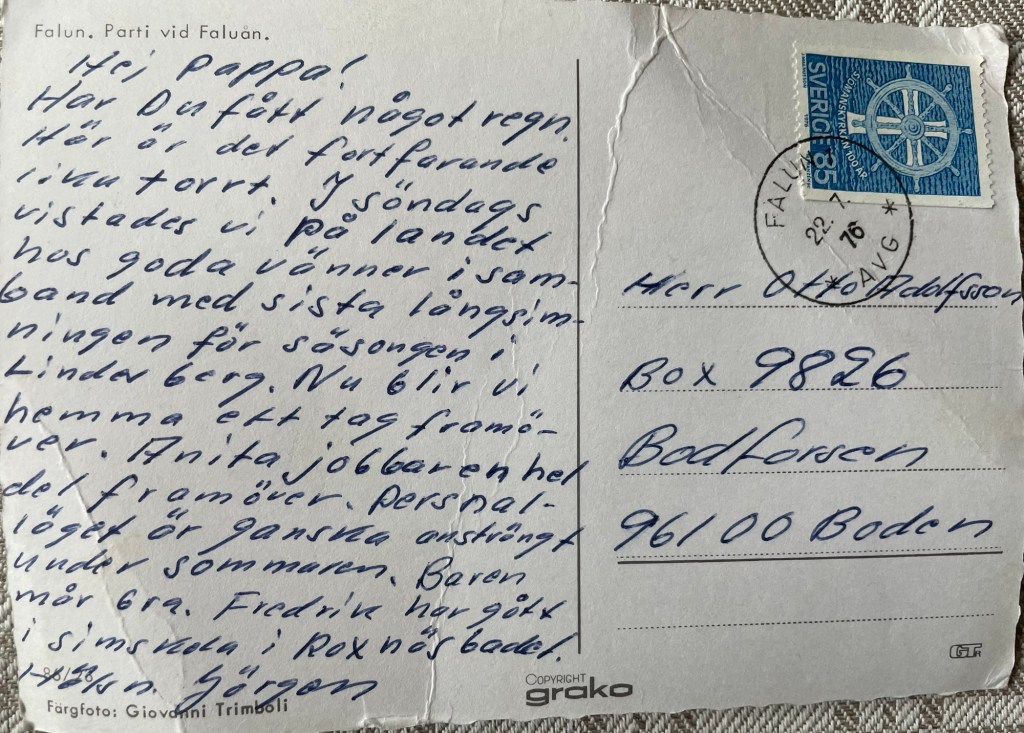 Falun. Parti vid Faluån.
Hej pappa!
Har Du fått något regn.
Här är det fortfarande
lika torrt. I söndags
vistades vi på landet
hos goda vänner i sam-
band med sista långsim-
ningen för säsongen i
Linderberg. Nu blir vi
hemma ett tag framö-
ver. Anita jobbar en hel
del framöver. Persnal-
läget är ganska ansträngt
under sommaren. Baren
mår bra. Fredrik har gått
i simskola i Roxnäsbadet.
Hälsn. Görgen
Färgfoto: Giovanni Trimboli
COPYRIGHT
grako
SVERIGE 85
SJÖMANSKYRKAN 100 ÅR
FALUN
22.7.
76
* AVG *
Herr Otto Adolfsson
Box 9826
Bodforsen
961 00 Boden